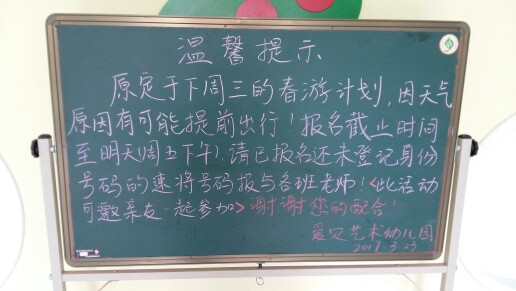 温馨提示
原定于下周三的春游计划,因天气
原因有可能提前出行!报名截止时间
至明天(周五下午).请已报名还未登记身份
号码的速将号码报与各班老师!<此活动
可邀亲友一起参加>谢谢您的配合!
爱贝艺术幼儿园
2017.3.23